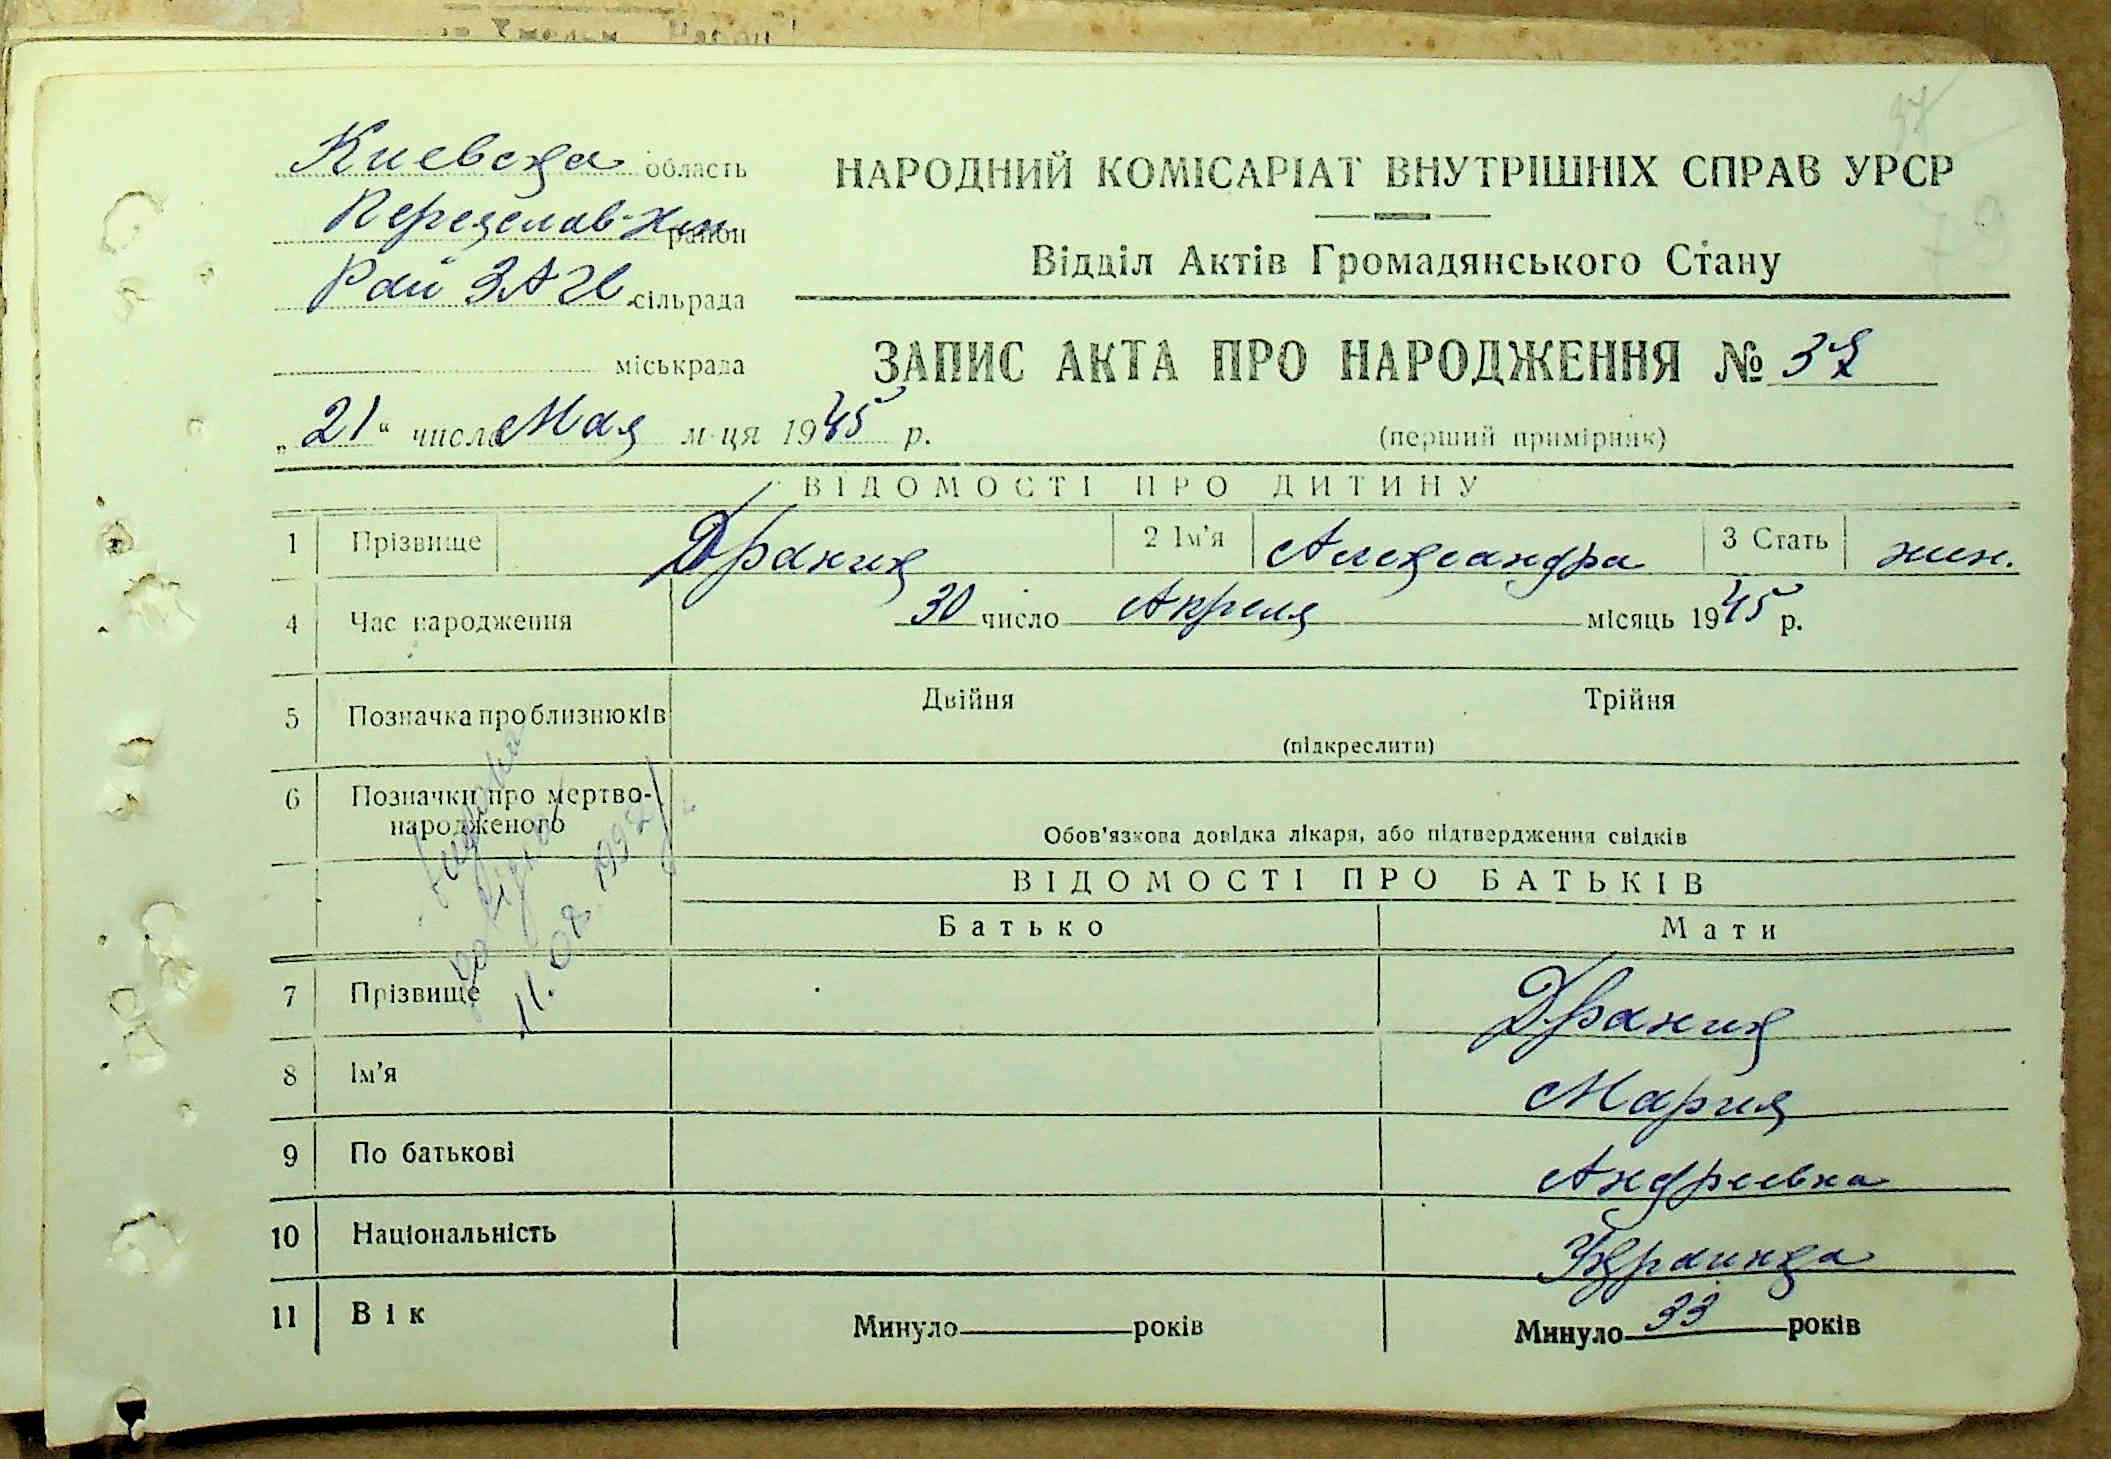 Киевская область
Переяслав-Хм. район
Рай ЗАГС сільрада
міськрада
НАРОДНИЙ КОМІСАРІАТ ВНУТРІШНІХ СПРАВ УРСР
Відділ Актів Громадянського Стану
ЗАПИС АКТА ПРО НАРОДЖЕННЯ №
„21“ число Мая м-ця 1945 р.
(перший примірник)
ВІДОМОСТІ ПРО ДИТИНУ
1 Прізвище Драник 2 Ім'я Александра 3 Стать жен.
4 Час народження 30 число Апреля місяць 1945 р.
5 Позначка про близнюків Двійня Трійня
(підкреслити)
6 Позначки про мертво-
народженого
Обов'язкова довідка лікаря, або підтвердження свідків
11.08.1992
ВІДОМОСТІ ПРО БАТЬКІВ
Батько Мати
7 Прізвище Драник
8 Ім'я Мария
9 По батькові Андреевна
10 Національність Украинка
11 Вік Минуло років Минуло 33 років